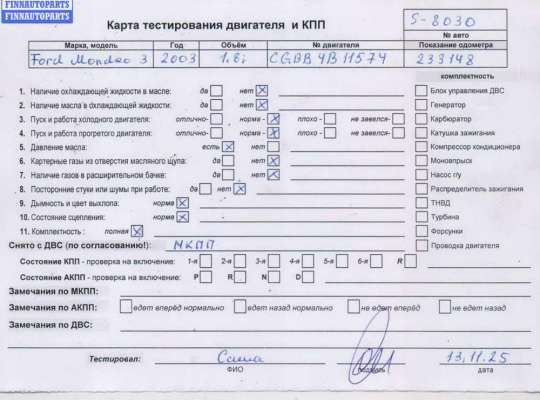 FINNAUTOPARTS
FINNAUTOPARTS
Карта тестирования двигателя и КПП
S-8030
№ авто
Марка, модель Год Объём № двигателя Показание одометра
Ford Mondeo 3 2003 1.8i CGBB 4B 11574 233148
комплектность
1. Наличие охлаждающей жидкости в масле: да нет Блок управления ДВС
2. Наличие масла в охлаждающей жидкости: да нет Генератор
3. Пуск и работа холодного двигателя: отлично- норма - плохо - не завелся- Карбюратор
4. Пуск и работа прогретого двигателя: отлично- норма - плохо - не завелся- Катушка зажигания
5. Давление масла: есть нет Компрессор кондиционера
6. Картерные газы из отверстия масляного щупа: да нет Моновпрыск
7. Наличие газов в расширительном бачке: да нет Насос г/у
8. Посторонние стуки или шумы при работе: да нет Распределитель зажигания
9. Дымность и цвет выхлопа: норма ТНВД
10. Состояние сцепления: норма Турбина
11. Комплектность : полная Форсунки
Снято с ДВС (по согласованию!): МКПП Проводка двигателя
Состояние КПП - проверка на включение: 1-я 2-я 3-я 4-я 5-я 6-я R
Состояние АКПП - проверка на включение: P R N D
Замечания по МКПП:
Замечания по АКПП: едет вперёд нормально едет назад нормально не едет вперёд не едет назад
Замечания по ДВС:
Тестировал: Саша 13.11.25
ФИО подпись дата